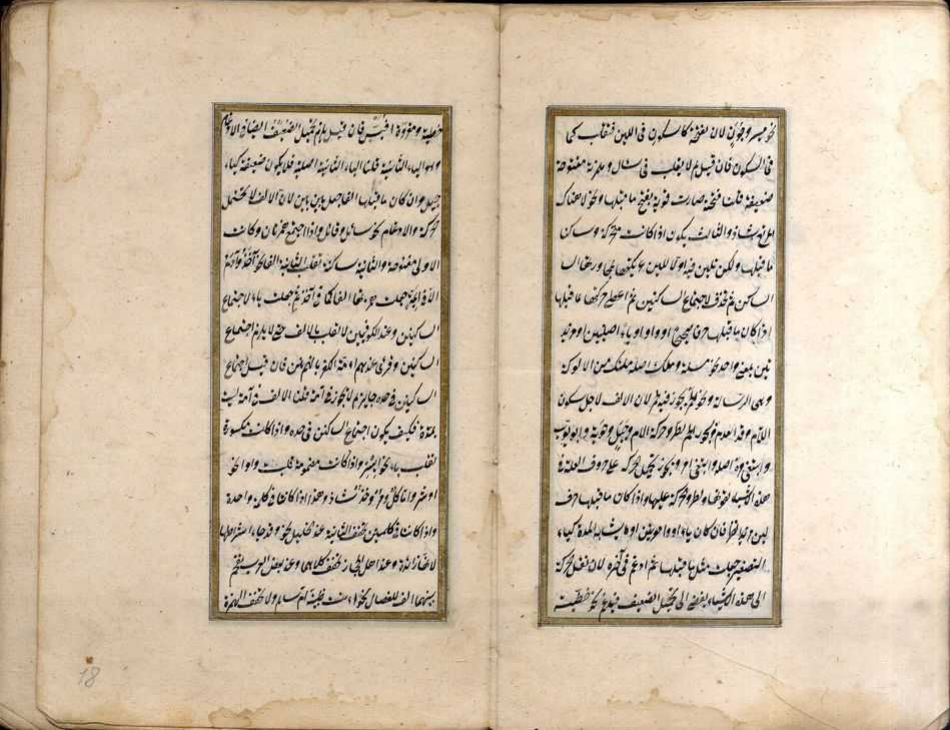 نحو مير وجون لان الفتحة كالسكون فى اللين فتقلب كما
فى السكون فان قيل لم لا يقلب فى سئال وهمزته مفتوحة
ضعيفة قلت فتحته صارت قوية بفتح ما قبلها ونحو لا هناك
المرتع شاذ والثالث يكون اذا كانت متحركة وساكن
ما قبلها ولكن تلين فيه اولا للين عريكتها لمجاورة الساكن
ثم تحذف لاجتماع الساكنين ثم اعطى حركتها لما قبلها
اذا كان ما قبلها حرفا صحيحا او واوا او ياء اصليتين او مزيد
تين بمعنى واحد نحو مسلة وملك اصله ملئك من الالوكة
وهى الرسالة ونحو لحمر يجوز فيه لحمر لان الالف لاجل سكون
اللام وقد انعدم ويجوز الحمر لطرو حركة اللام وجيل وحوبة وابو يوب
وابتغى تحمل الحركة على حروف العلة فى
هذه الاشياء لقوتها ولطرو حركة عليها واذا كان ما قبلها حرف
لين مزيد نظر فان كان ياء او واوا مدتين او ما يشابه المدة كياء
التصغير جعلت مثل ما قبلها ثم ادغم فى آخره لان نقل الحركة
الى هذه الاشياء يفضى الى تحمل الضعيف فيدغم نحو خطية
خطية ومقروة وافيس فان قيل يلزم تحمل الضعيف ايضا فى الادغام
وهو الياء الثانية قلنا الياء الثانية اصلية فلا يكون ضعيفة كياء
جيل وان كان ما قبلها الفا جعل بين بين لان الالف لا يحتمل
الحركة والادغام نحو سائل وقائل واذا اجتمع همزتان وكانت
الاولى مفتوحة والثانية ساكنة تقلب الثانية الفا نحو آخذ وآدم
الا فى ائمة جعلت همزتها الفا كما فى آخذ ثم جعلت ياء لاجتماع
الساكنين وعند الكوفيين لا تقلب بالالف حتى لا يلزم اجتماع
الساكنين وقرئ عندهم ائمة الكفر بالهمزتين فان قيل اجتماع
الساكنين فى حده جايز لم لا يجوز فى آمة قلنا الالف فى آمة ليست
بمدة فكيف يكون اجتماع الساكنين فى حده واذا كانت مكسورة
تقلب ياء نحو ايسر واذا كانت مضمومة قلبت واوا نحو
اوسر واما كل ومر وخذ شاذ وهذا اذا كانتا فى كلمة واحدة
واذا كانت فى كلمتين يخفف الثانية عند الخليل نحو وقد جاء اشراطها
وعند اهل الحجاز يخفف كلاهما وعند بعض العرب يقحم
بينهما الف للفصل نحو ءانت ظبية ام ام سالم ولا يخفف الهمزة